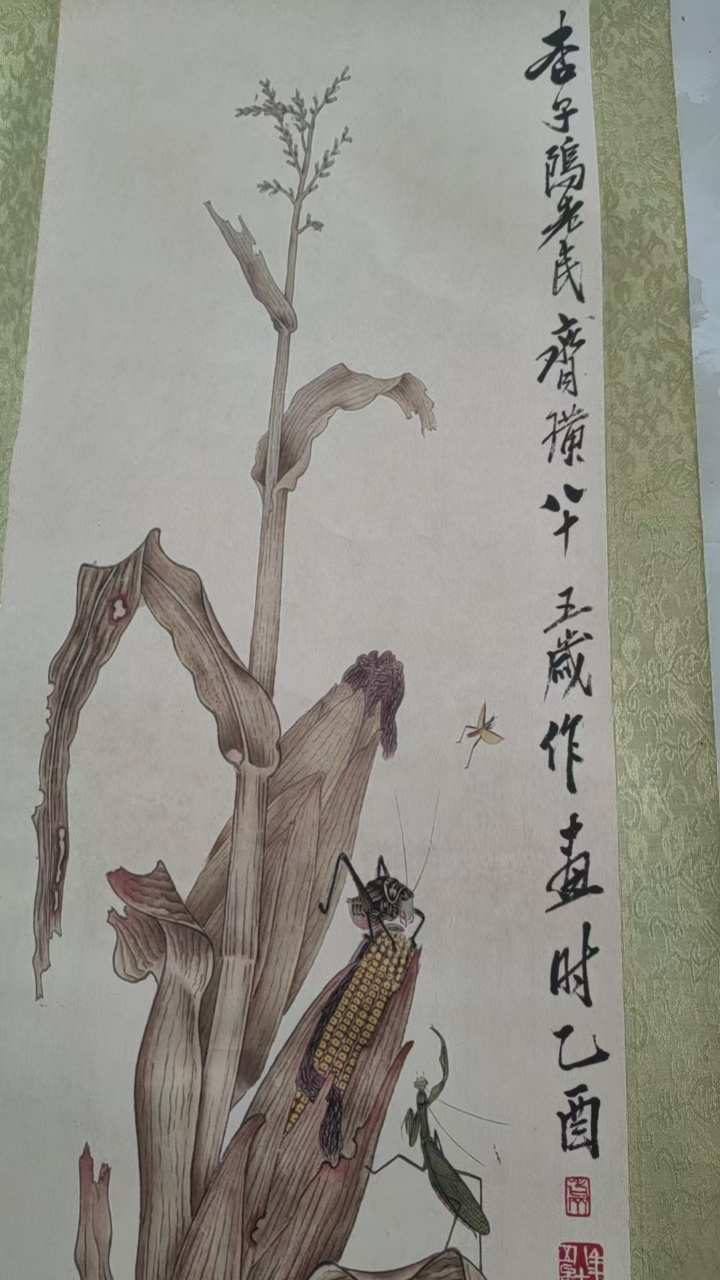 杏子隖老民齊璜八十五歲作畫时乙酉